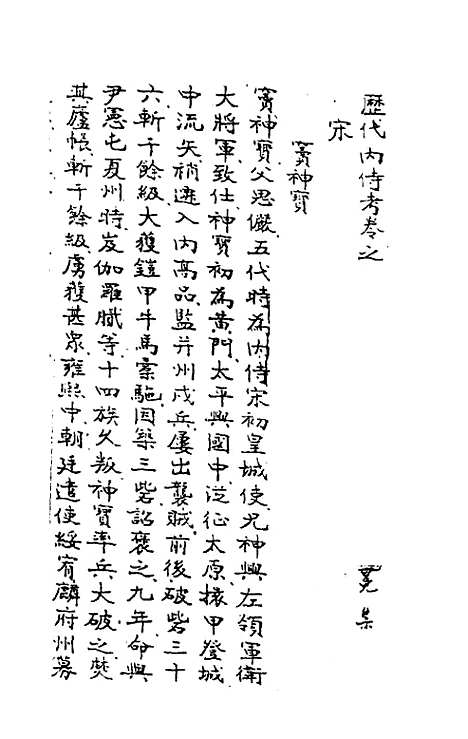 歷代內侍考卷之
冕集
宋
竇神寳
竇神寳父思儼五代時為內侍宋初皇城使兄神興左領軍衛
大將軍致仕神寳初為黃門太平興國中從征太原擐甲登城
中流矢稍遷入內高品監并州戍兵屢出襲賊前後破砦三十
六斬千餘級大獲鎧甲牛馬槖駞因築三砦詔褒之九年命與
尹憲屯夏州時岌伽羅膩等十四族久叛神寳率兵大破之焚
其廬帳斬千餘級虜獲甚衆雍熙中朝廷遣使綏宥麟府州募